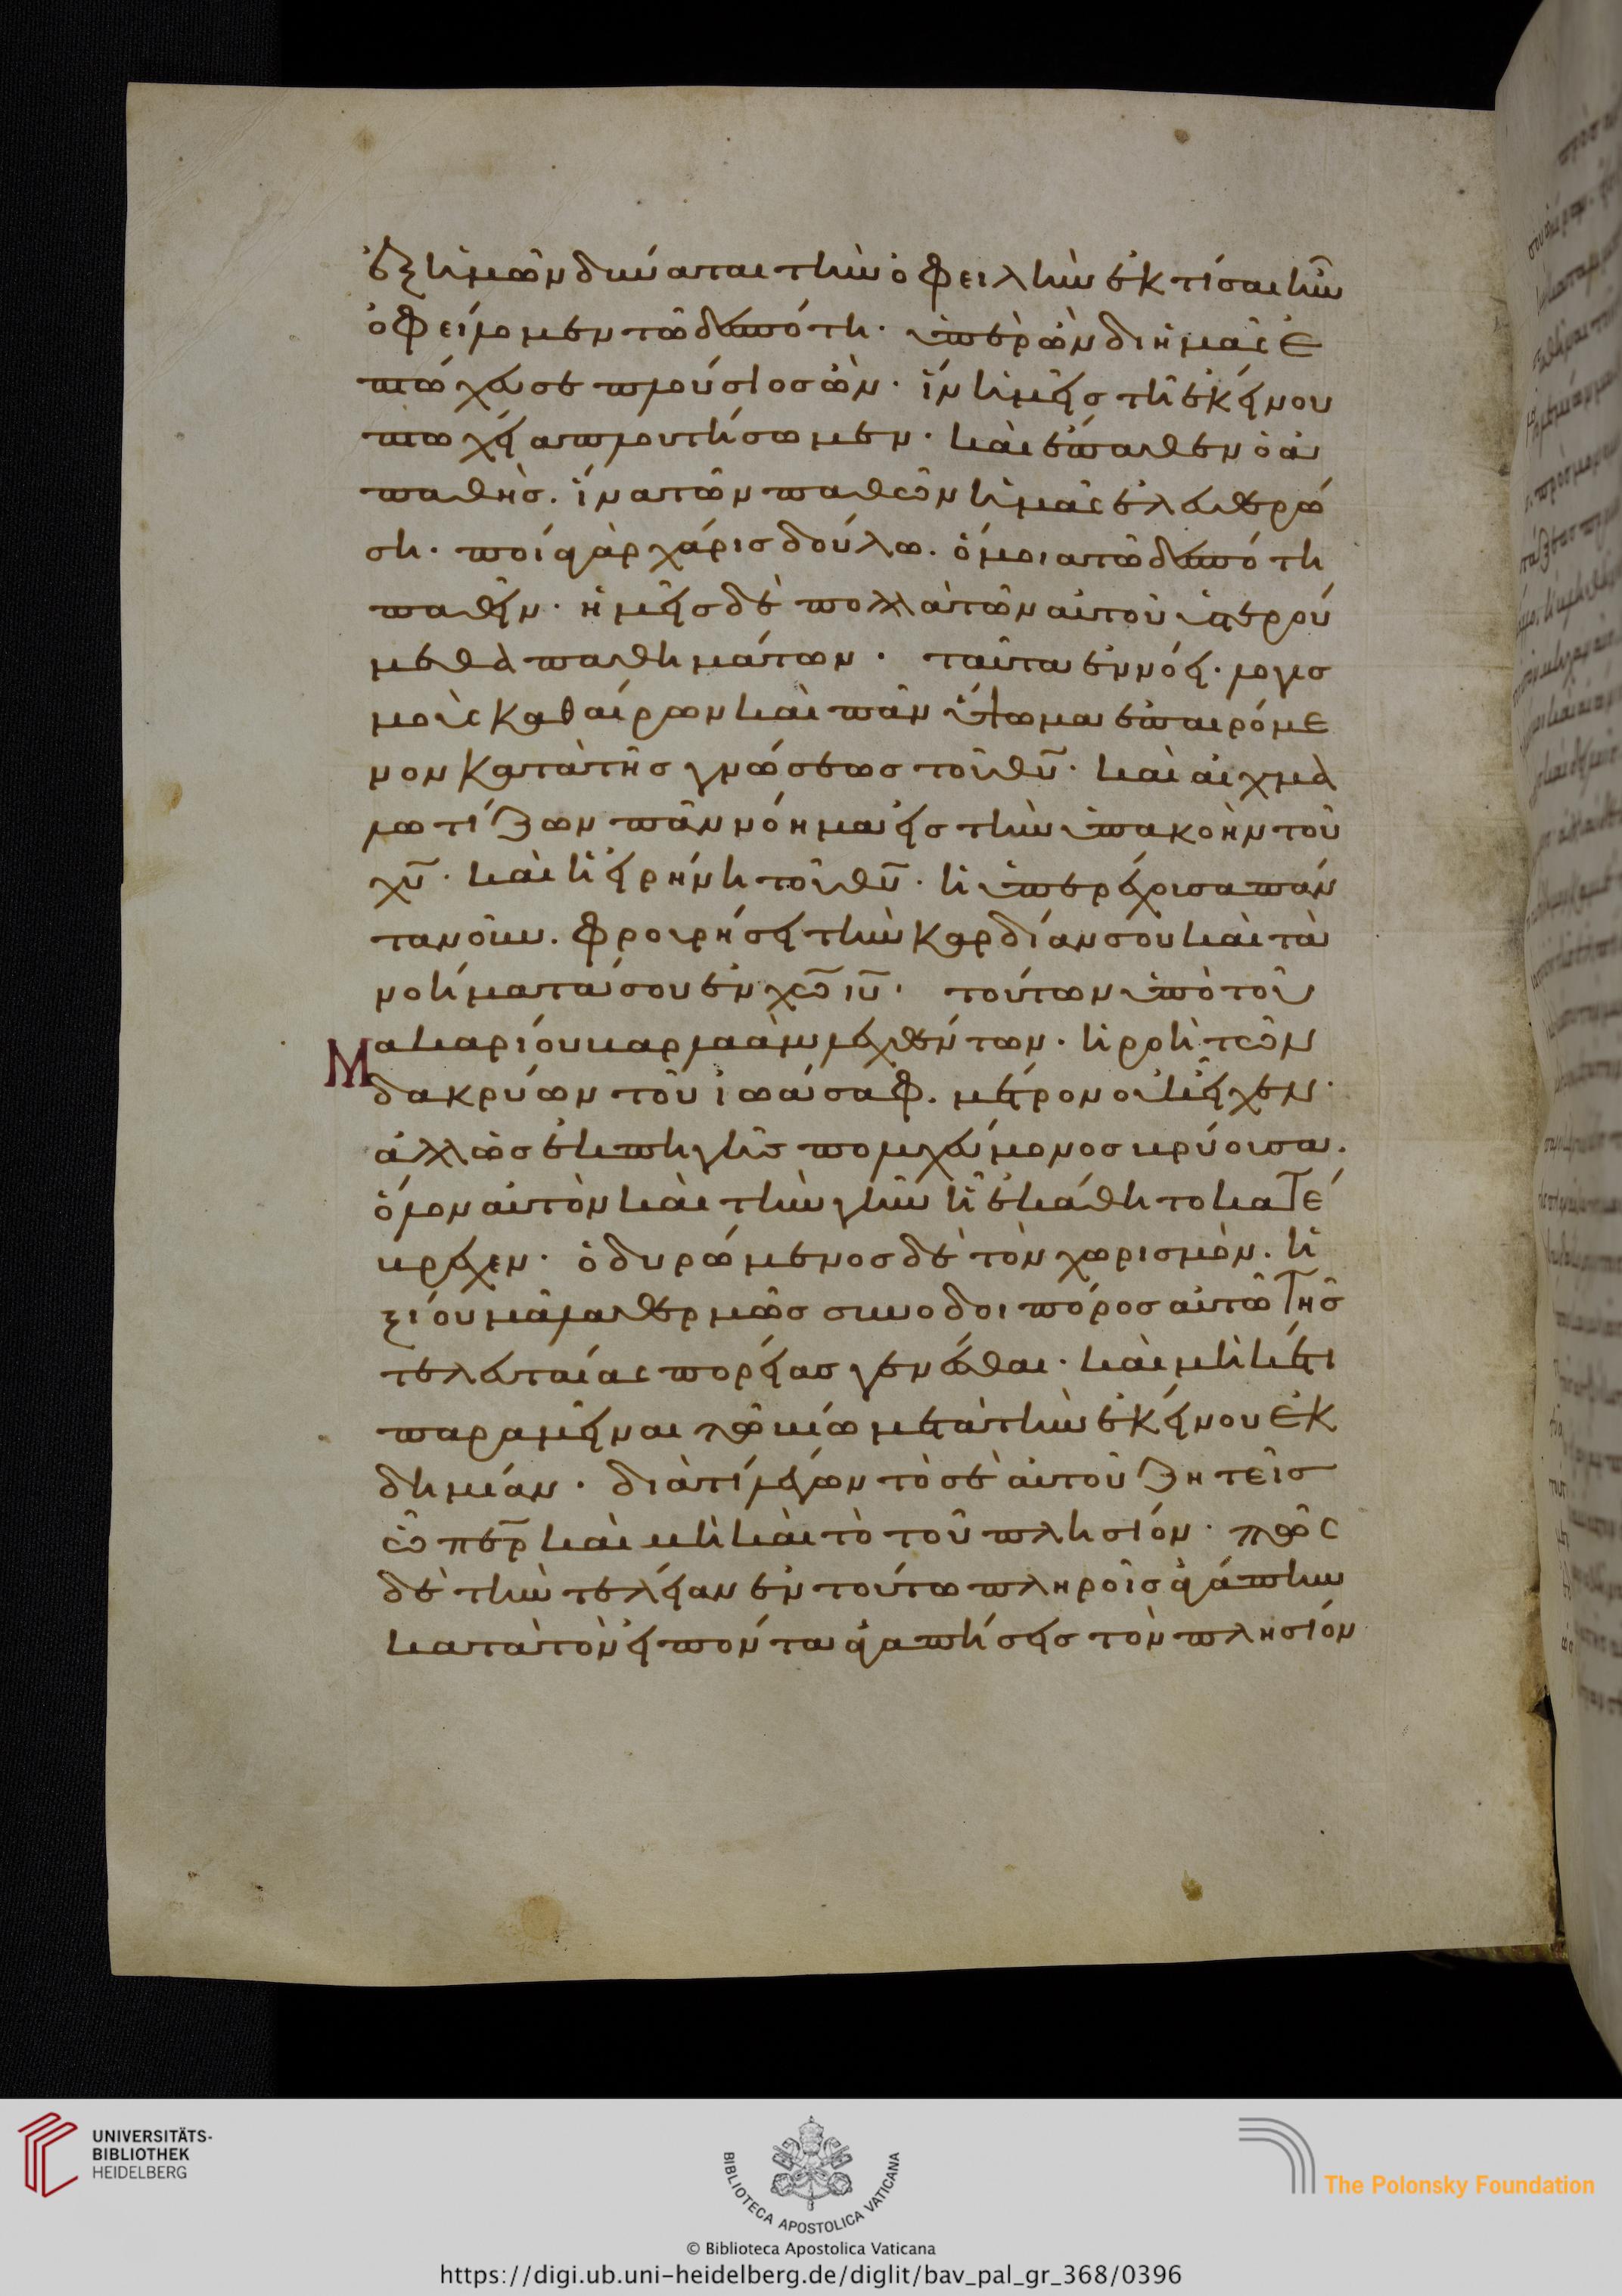 ἐξ ἡμῶν δύναται τὴν ὀφειλὴν ἐκτίσαι ἣν
ὀφείλομεν τῷ δεσπότῃ· ὑπὲρ ὧν δι ἡμᾶς ἐ
πτώχευσε πλούσιος ὤν· ἵν ἡμεῖς τῇ ἐκείνου
πτωχείᾳ πλουτήσωμεν· καὶ ἔπαθεν ὁ ἀ
παθής. ἵνα τῶν παθῶν ἡμᾶς ἐλευθερώ
σῃ· ποία γὰρ χάρις δούλῳ. ὅμοια τῷ δεσπότῃ
παθεῖν· ἡμεῖς δὲ πολλὰ τῶν αὐτοῦ ὑστερού
μεθα παθημάτων· ταῦτα ἐννόει· λογισ
μοὺς καθαίρων καὶ πᾶν ὕψωμα ἐπαιρόμε
νον κατὰ τῆς γνώσεως τοῦ θυ̅· καὶ αἰχμα
λωτίζων πᾶν νόημα εἰς τὴν ὑπακοὴν τοῦ
χυ̅· καὶ ἡ εἰρήνη τοῦ θυ̅· ἡ ὑπερέχουσα πάν
τα νοῦν. φρουρήσει τὴν καρδίαν σου καὶ τὰ
νοήματά σου ἐν χω̅ ιυ̅· τούτων ὑπὸ τοῦ
Μακαρίου βαρλαὰμ λεχθέντων· ἡ ῥοὴ τῶν
δακρύων τοῦ ἰωάσαφ. μέτρον οὐκ εἶχεν·
ἀλλ ὡς ἐκ πηγῆς πολυχεύμονος βρύουσα.
ὅλον αὐτὸν καὶ τὴν γῆν ᾗ ἐκάθητο κατέ
βρεχεν· ὀδυρώμενος δὲ τὸν χωρισμὸν. ἠ
ξίου μάλα θερμῶς συνοδοιπόρος αὐτῷ τῆς
τελευταίας πορείας γενέσθαι· καὶ μὴ κέτι
παραμεῖναι τῷ βίῳ μετὰ τὴν ἐκείνου ἐκ
δημίαν· διὰ τί λέγων τὸ σεαυτοῦ ζητεῖς
ὦ περ̅ καὶ μὴ καὶ τὸ τοῦ πλησίον· πῶς
δὲ τὴν τελείαν ἐν τούτῳ πληροῖς ἀγάπην
κατὰ τὸν εἰπόντα ἀγαπήσεις τὸν πλησίον
UNIVERSITÄTS-
BIBLIOTHEK
HEIDELBERG
BIBLIOTECA APOSTOLICA VATICANA
The Polonsky Foundation
© Biblioteca Apostolica Vaticana
https://digi.ub.uni-heidelberg.de/diglit/bav_pal_gr_368/0396